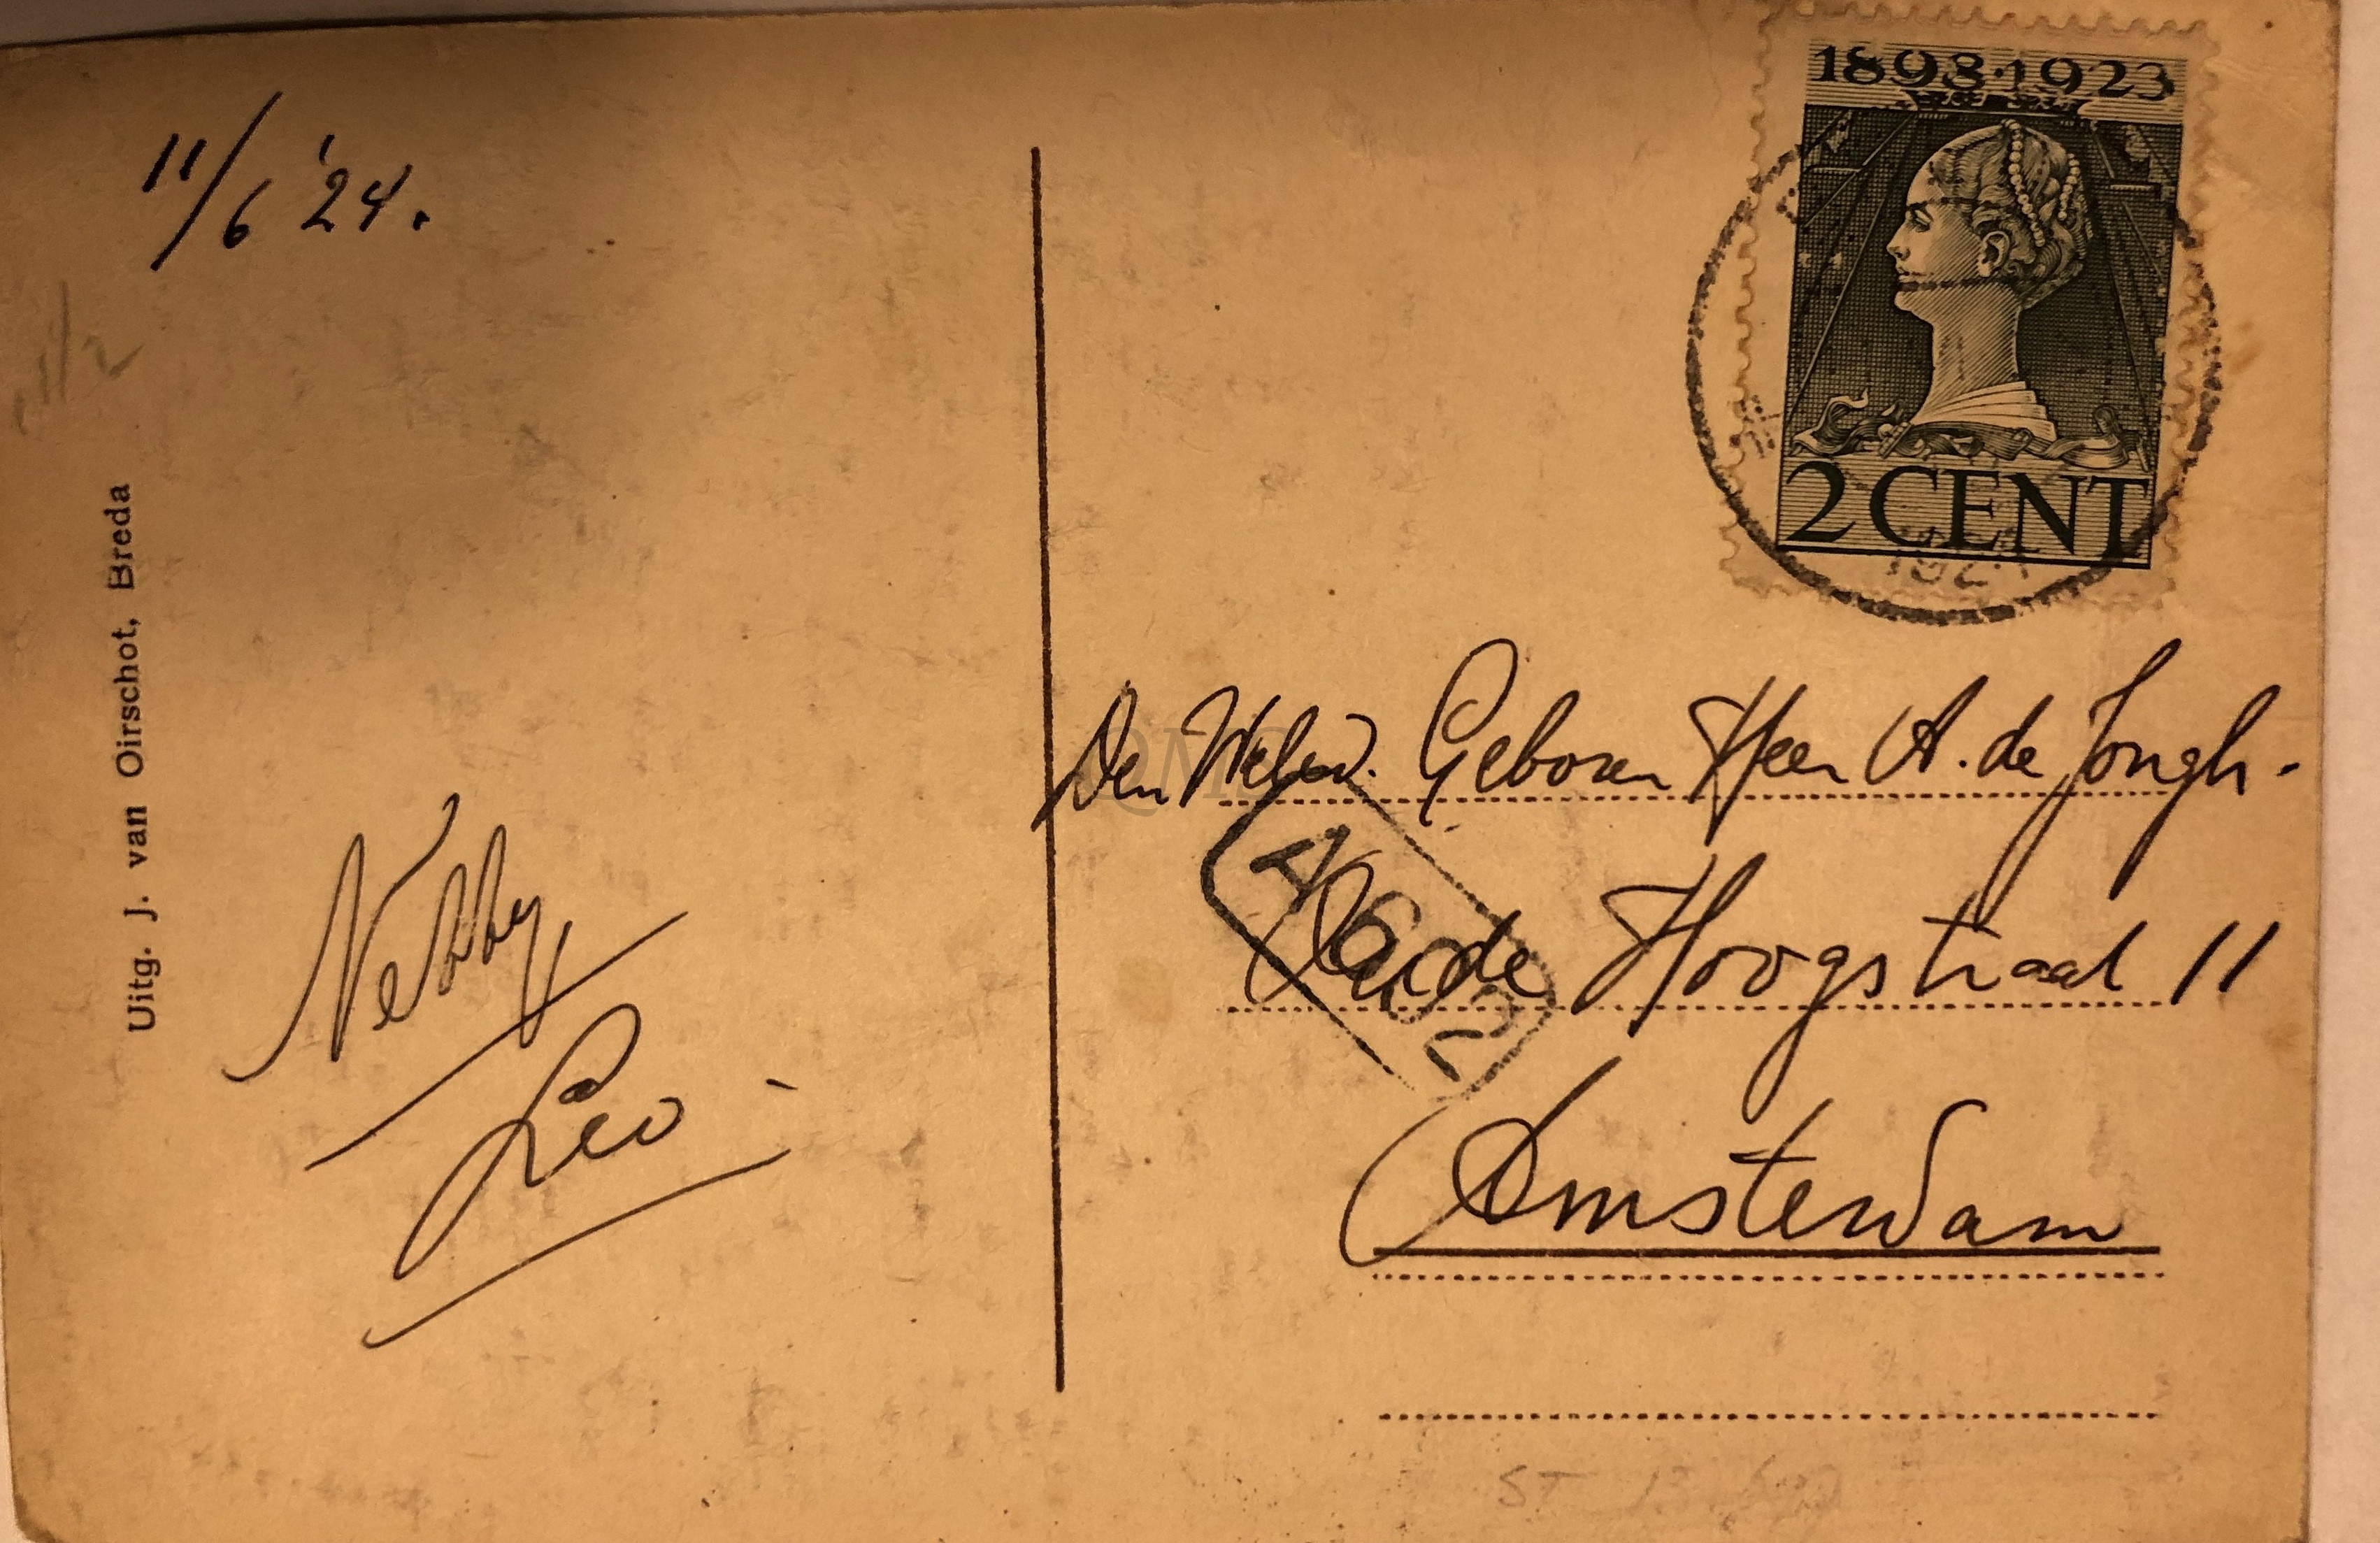 11/6 '24.
Uitg. J. van Oirschot, Breda
Leo
1893·1923
2 CENT
Den Geboren Heer A. de Jongh.
Oude Hoogstraat 11
Amsterdam